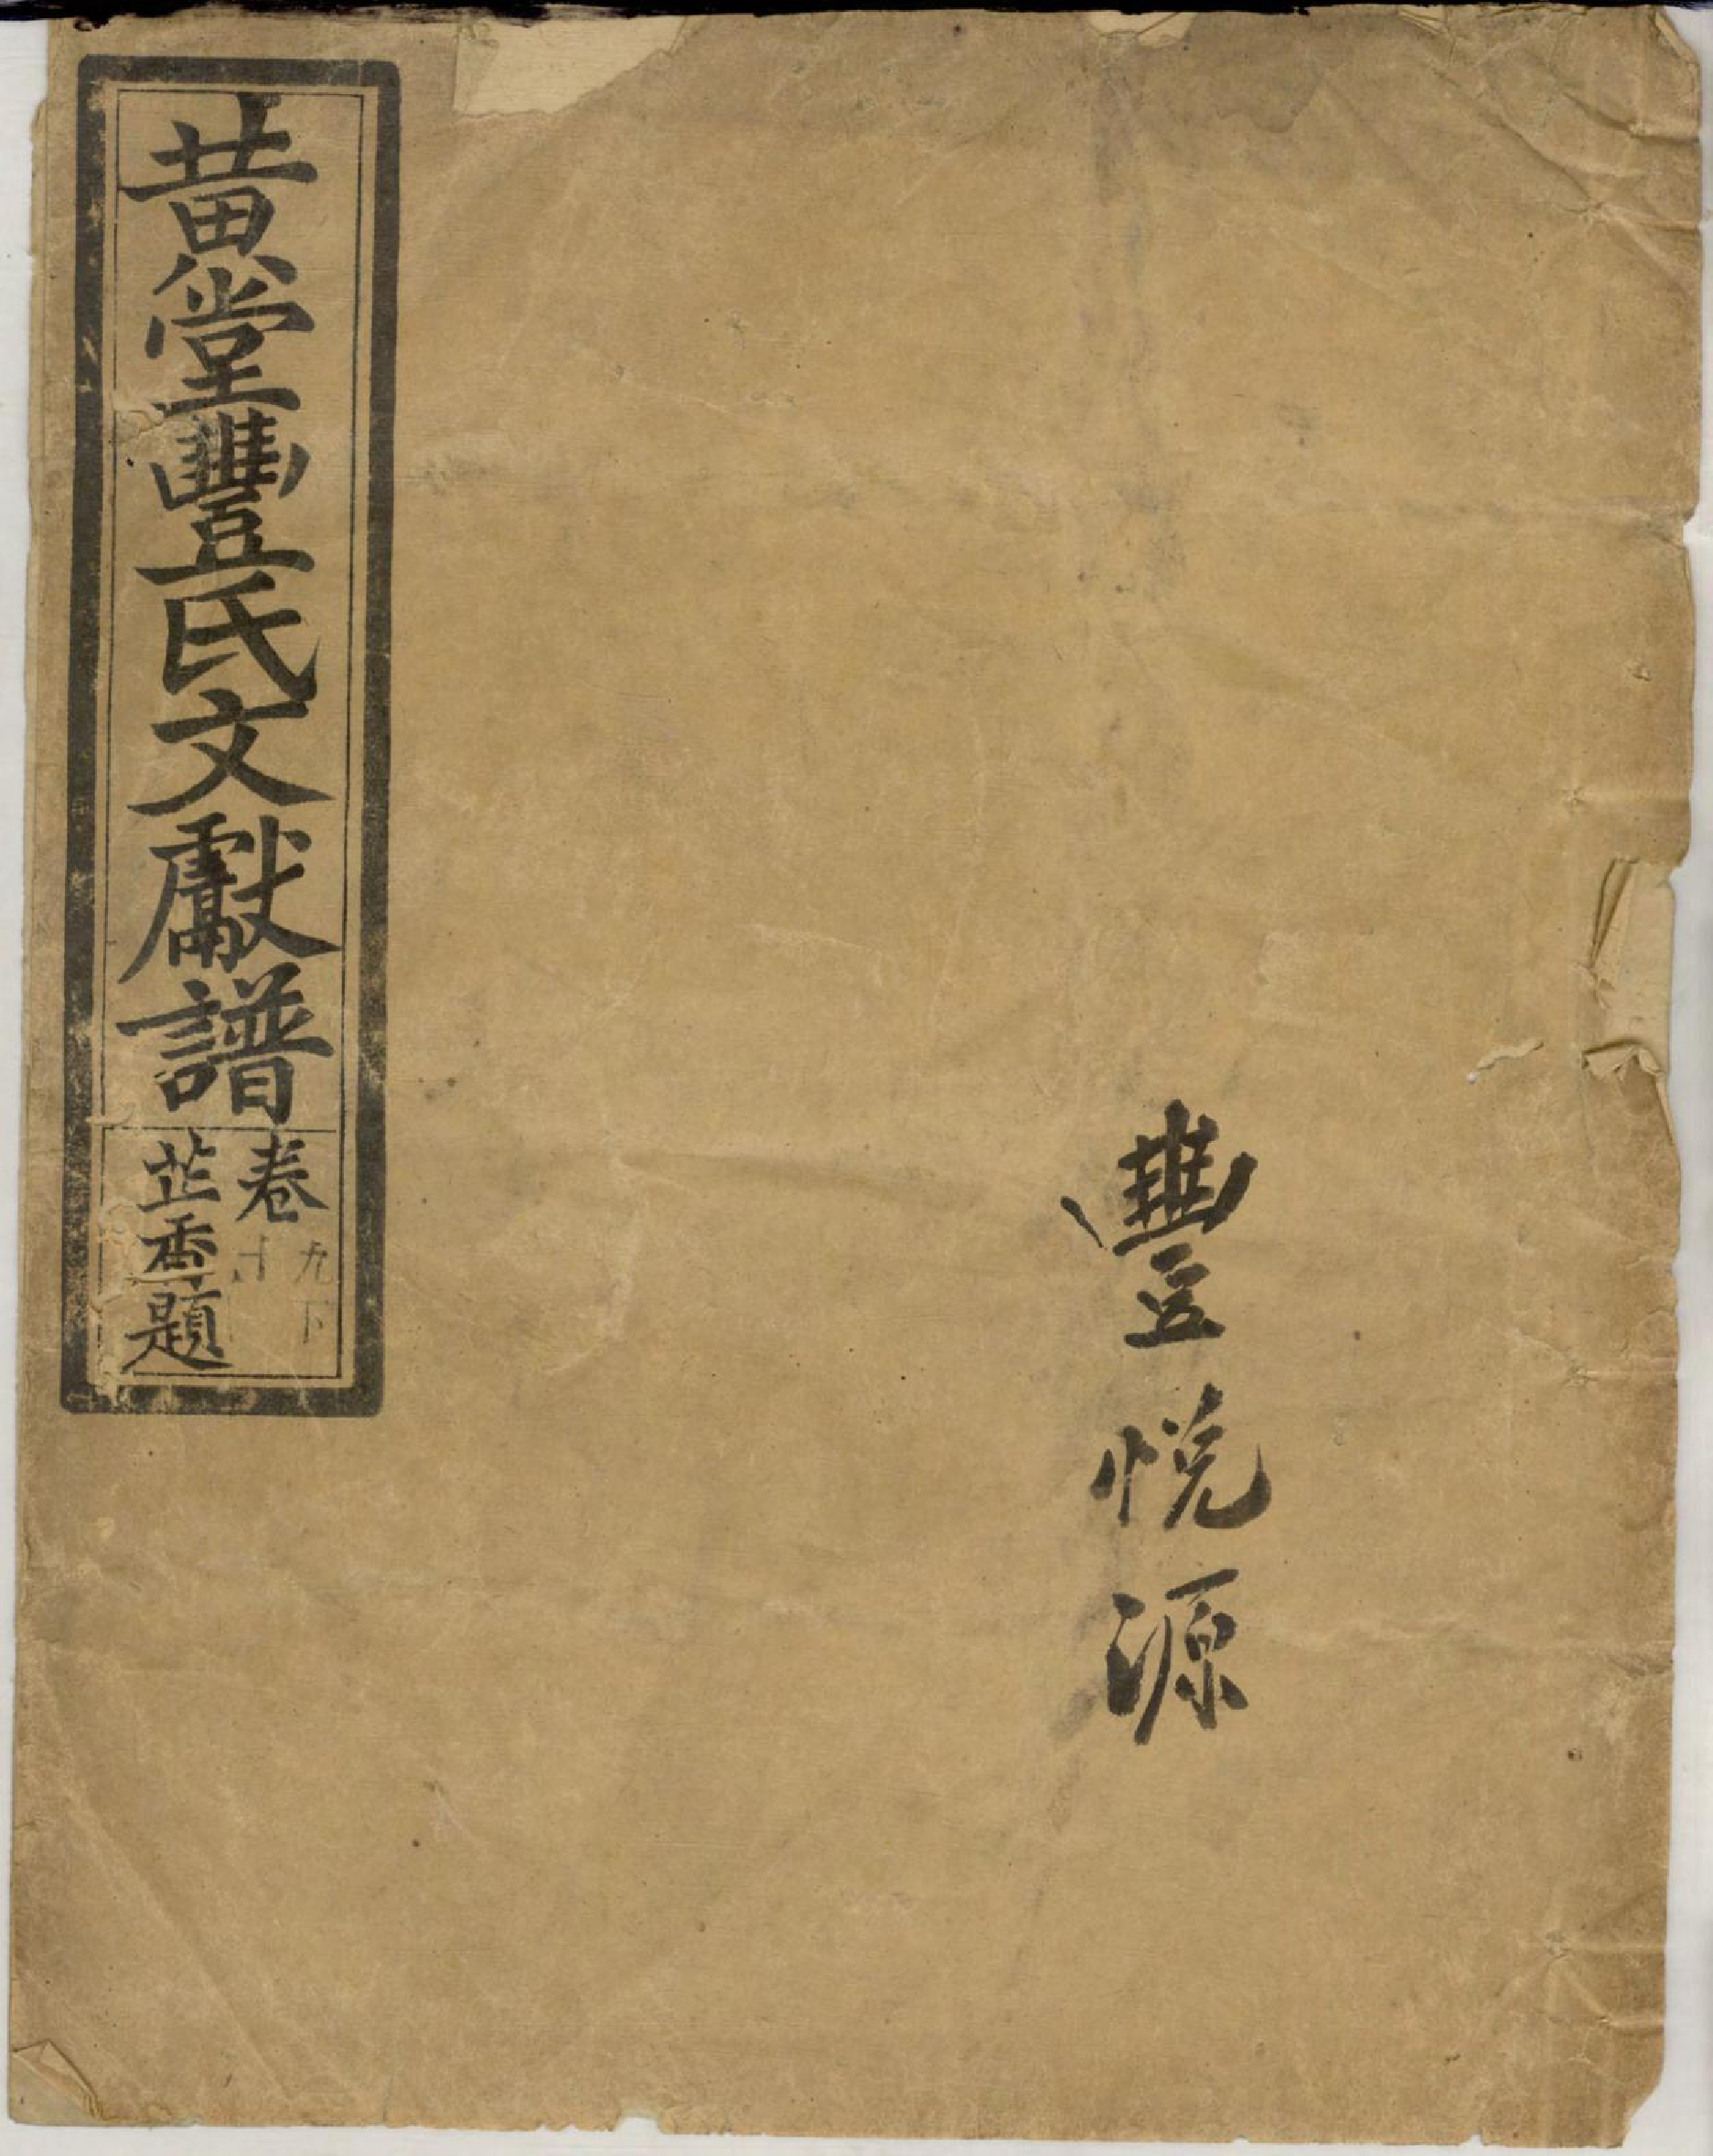 豐悅源
黃堂豐氏文獻譜
卷
九下
十
芷香題